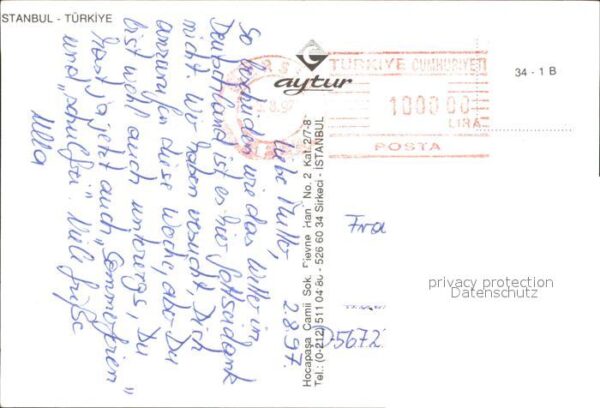 İSTANBUL - TÜRKİYE
aytur
TÜRKİYE CUMHURİYETİ
100000
LIRA
POSTA
34 - 1 B
Hocapaşa Camii Sok. Plevne Han No. 2 Kat. 2/7-8
Tel.: (0-212) 511 04 80 - 526 60 34 Sirkeci - İSTANBUL
2.8.97.
Liebe Mutter,
So bescheiden wie das Wetter in
Deutschland ist es hier Gottseidank
nicht. Wir haben versucht, Dich
anzurufen diese Woche, aber Du
bist wohl auch unterwegs, Du
hast ja jetzt auch „Sommerferien"
und „schulfrei". Viele Grüße
Fra
D-5672
privacy protection
Datenschutz